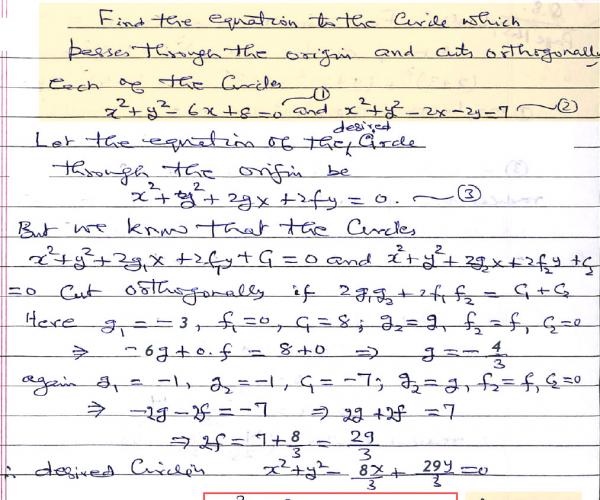 Find the equation to the Circle which
passes through the origin and cuts orthogonally
each of the Circles
x²+y²-6x+8=0 —① and x²+y²-2x-2y=7 —②
Let the equation of the desired Circle
through the origin be
x²+y²+2gx+2fy=0. —③
But we know that the Circles
x²+y²+2g₁x+2f₁y+C₁=0 and x²+y²+2g₂x+2f₂y+C₂
=0 Cut orthogonally if 2g₁g₂+2f₁f₂=C₁+C₂
Here g₁=-3, f₁=0, C₁=8; g₂=g, f₂=f, C₂=0
⇒ -6g+0.f=8+0 ⇒ g=-4/3
again g₁=-1, g₂=-1, C₁=-7; g₂=g, f₂=f, C₂=0
⇒ -2g-2f=-7 ⇒ 2g+2f=7
⇒ 2f=7+8/3=29/3
∴ desired Circle is x²+y²-8x/3+29y/3=0